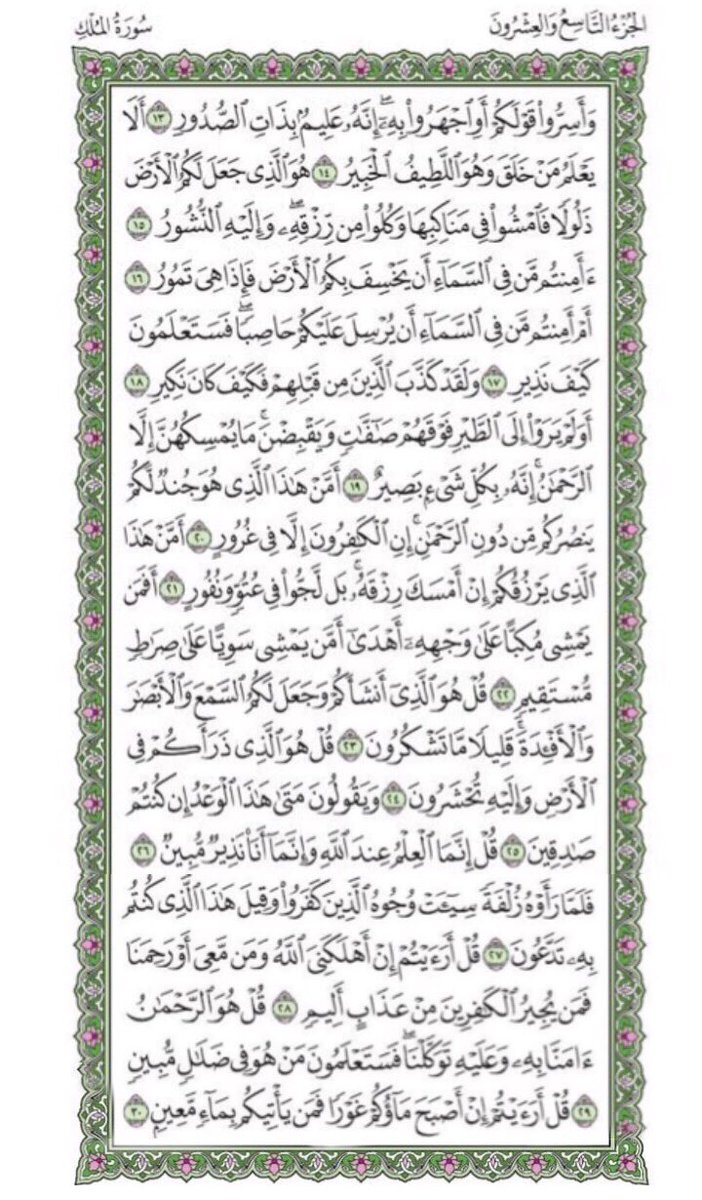 الجُزْءُ التَّاسِعُ وَالعِشْرُونَ
سُورَةُ المُلْكِ
وَأَسِرُّواْ قَوْلَكُمْ أَوِ ٱجْهَرُواْ بِهِۦٓۖ إِنَّهُۥ عَلِيمُۢ بِذَاتِ ٱلصُّدُورِ ١٣ أَلَا
يَعْلَمُ مَنْ خَلَقَ وَهُوَ ٱللَّطِيفُ ٱلْخَبِيرُ ١٤ هُوَ ٱلَّذِى جَعَلَ لَكُمُ ٱلْأَرْضَ
ذَلُولًا فَٱمْشُواْ فِى مَنَاكِبِهَا وَكُلُواْ مِن رِّزْقِهِۦۖ وَإِلَيْهِ ٱلنُّشُورُ ١٥
ءَأَمِنتُم مَّن فِى ٱلسَّمَآءِ أَن يَخْسِفَ بِكُمُ ٱلْأَرْضَ فَإِذَا هِىَ تَمُورُ ١٦
أَمْ أَمِنتُم مَّن فِى ٱلسَّمَآءِ أَن يُرْسِلَ عَلَيْكُمْ حَاصِبًاۖ فَسَتَعْلَمُونَ
كَيْفَ نَذِيرِ ١٧ وَلَقَدْ كَذَّبَ ٱلَّذِينَ مِن قَبْلِهِمْ فَكَيْفَ كَانَ نَكِيرِ ١٨
أَوَلَمْ يَرَوْاْ إِلَى ٱلطَّيْرِ فَوْقَهُمْ صَٰٓفَّٰتٍ وَيَقْبِضْنَۚ مَا يُمْسِكُهُنَّ إِلَّا
ٱلرَّحْمَٰنُۚ إِنَّهُۥ بِكُلِّ شَىْءِۭ بَصِيرٌ ١٩ أَمَّنْ هَٰذَا ٱلَّذِى هُوَ جُندٌ لَّكُمْ
يَنصُرُكُم مِّن دُونِ ٱلرَّحْمَٰنِۚ إِنِ ٱلْكَٰفِرُونَ إِلَّا فِى غُرُورٍ ٢٠ أَمَّنْ هَٰذَا
ٱلَّذِى يَرْزُقُكُمْ إِنْ أَمْسَكَ رِزْقَهُۥۚ بَل لَّجُّواْ فِى عُتُوٍّ وَنُفُورٍ ٢١ أَفَمَن
يَمْشِى مُكِبًّا عَلَىٰ وَجْهِهِۦٓ أَهْدَىٰٓ أَمَّن يَمْشِى سَوِيًّا عَلَىٰ صِرَٰطٍ
مُّسْتَقِيمٍ ٢٢ قُلْ هُوَ ٱلَّذِىٓ أَنشَأَكُمْ وَجَعَلَ لَكُمُ ٱلسَّمْعَ وَٱلْأَبْصَٰرَ
وَٱلْأَفْـِٔدَةَۖ قَلِيلًا مَّا تَشْكُرُونَ ٢٣ قُلْ هُوَ ٱلَّذِى ذَرَأَكُمْ فِى
ٱلْأَرْضِ وَإِلَيْهِ تُحْشَرُونَ ٢٤ وَيَقُولُونَ مَتَىٰ هَٰذَا ٱلْوَعْدُ إِن كُنتُمْ
صَٰدِقِينَ ٢٥ قُلْ إِنَّمَا ٱلْعِلْمُ عِندَ ٱللَّهِ وَإِنَّمَآ أَنَا۠ نَذِيرٌ مُّبِينٌ ٢٦
فَلَمَّا رَأَوْهُ زُلْفَةً سِيٓـَٔتْ وُجُوهُ ٱلَّذِينَ كَفَرُواْ وَقِيلَ هَٰذَا ٱلَّذِى كُنتُم
بِهِۦ تَدَّعُونَ ٢٧ قُلْ أَرَءَيْتُمْ إِنْ أَهْلَكَنِىَ ٱللَّهُ وَمَن مَّعِىَ أَوْ رَحِمَنَا
فَمَن يُجِيرُ ٱلْكَٰفِرِينَ مِنْ عَذَابٍ أَلِيمٍ ٢٨ قُلْ هُوَ ٱلرَّحْمَٰنُ
ءَامَنَّا بِهِۦ وَعَلَيْهِ تَوَكَّلْنَاۖ فَسَتَعْلَمُونَ مَنْ هُوَ فِى ضَلَٰلٍ مُّبِينٍ
٢٩ قُلْ أَرَءَيْتُمْ إِنْ أَصْبَحَ مَآؤُكُمْ غَوْرًا فَمَن يَأْتِيكُم بِمَآءٍ مَّعِينٍۭ ٣٠